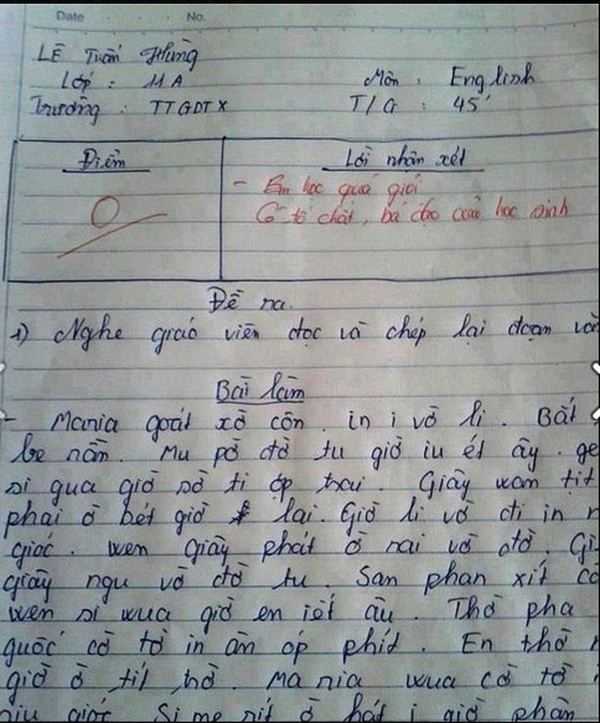 Date No.
LÊ Tuấn Hưng
Lớp : 11A Môn : English
Trường : TTGDTX T/G : 45'
Điểm Lời nhận xét
0
- Em học quá giỏi
Có tố chất, bá đạo của học sinh
Đề ra.
1) Nghe giáo viên đọc và chép lại đoạn văn
Bài làm
- Mania goát xờ côn. in i vờ li. Bất
be nần. Mu pờ đờ tu giờ iu ét ây. ge
si qua giờ sờ ti ớp trai. Giây wan tít
phai ờ hét giờ lai. Giờ li vờ đi in
giốc. wen giây phát ờ rai vờ đờ. Gi
giây ngu vờ đờ tu. San phan xít cờ
wen si wua giờ en iét âu. Thờ pha
quốc cờ tờ in ần ốp phít. En thờ
giờ ờ tít hờ. Ma nia wua cờ tờ
niu giốc. Si me rít ờ hát i giờ phần